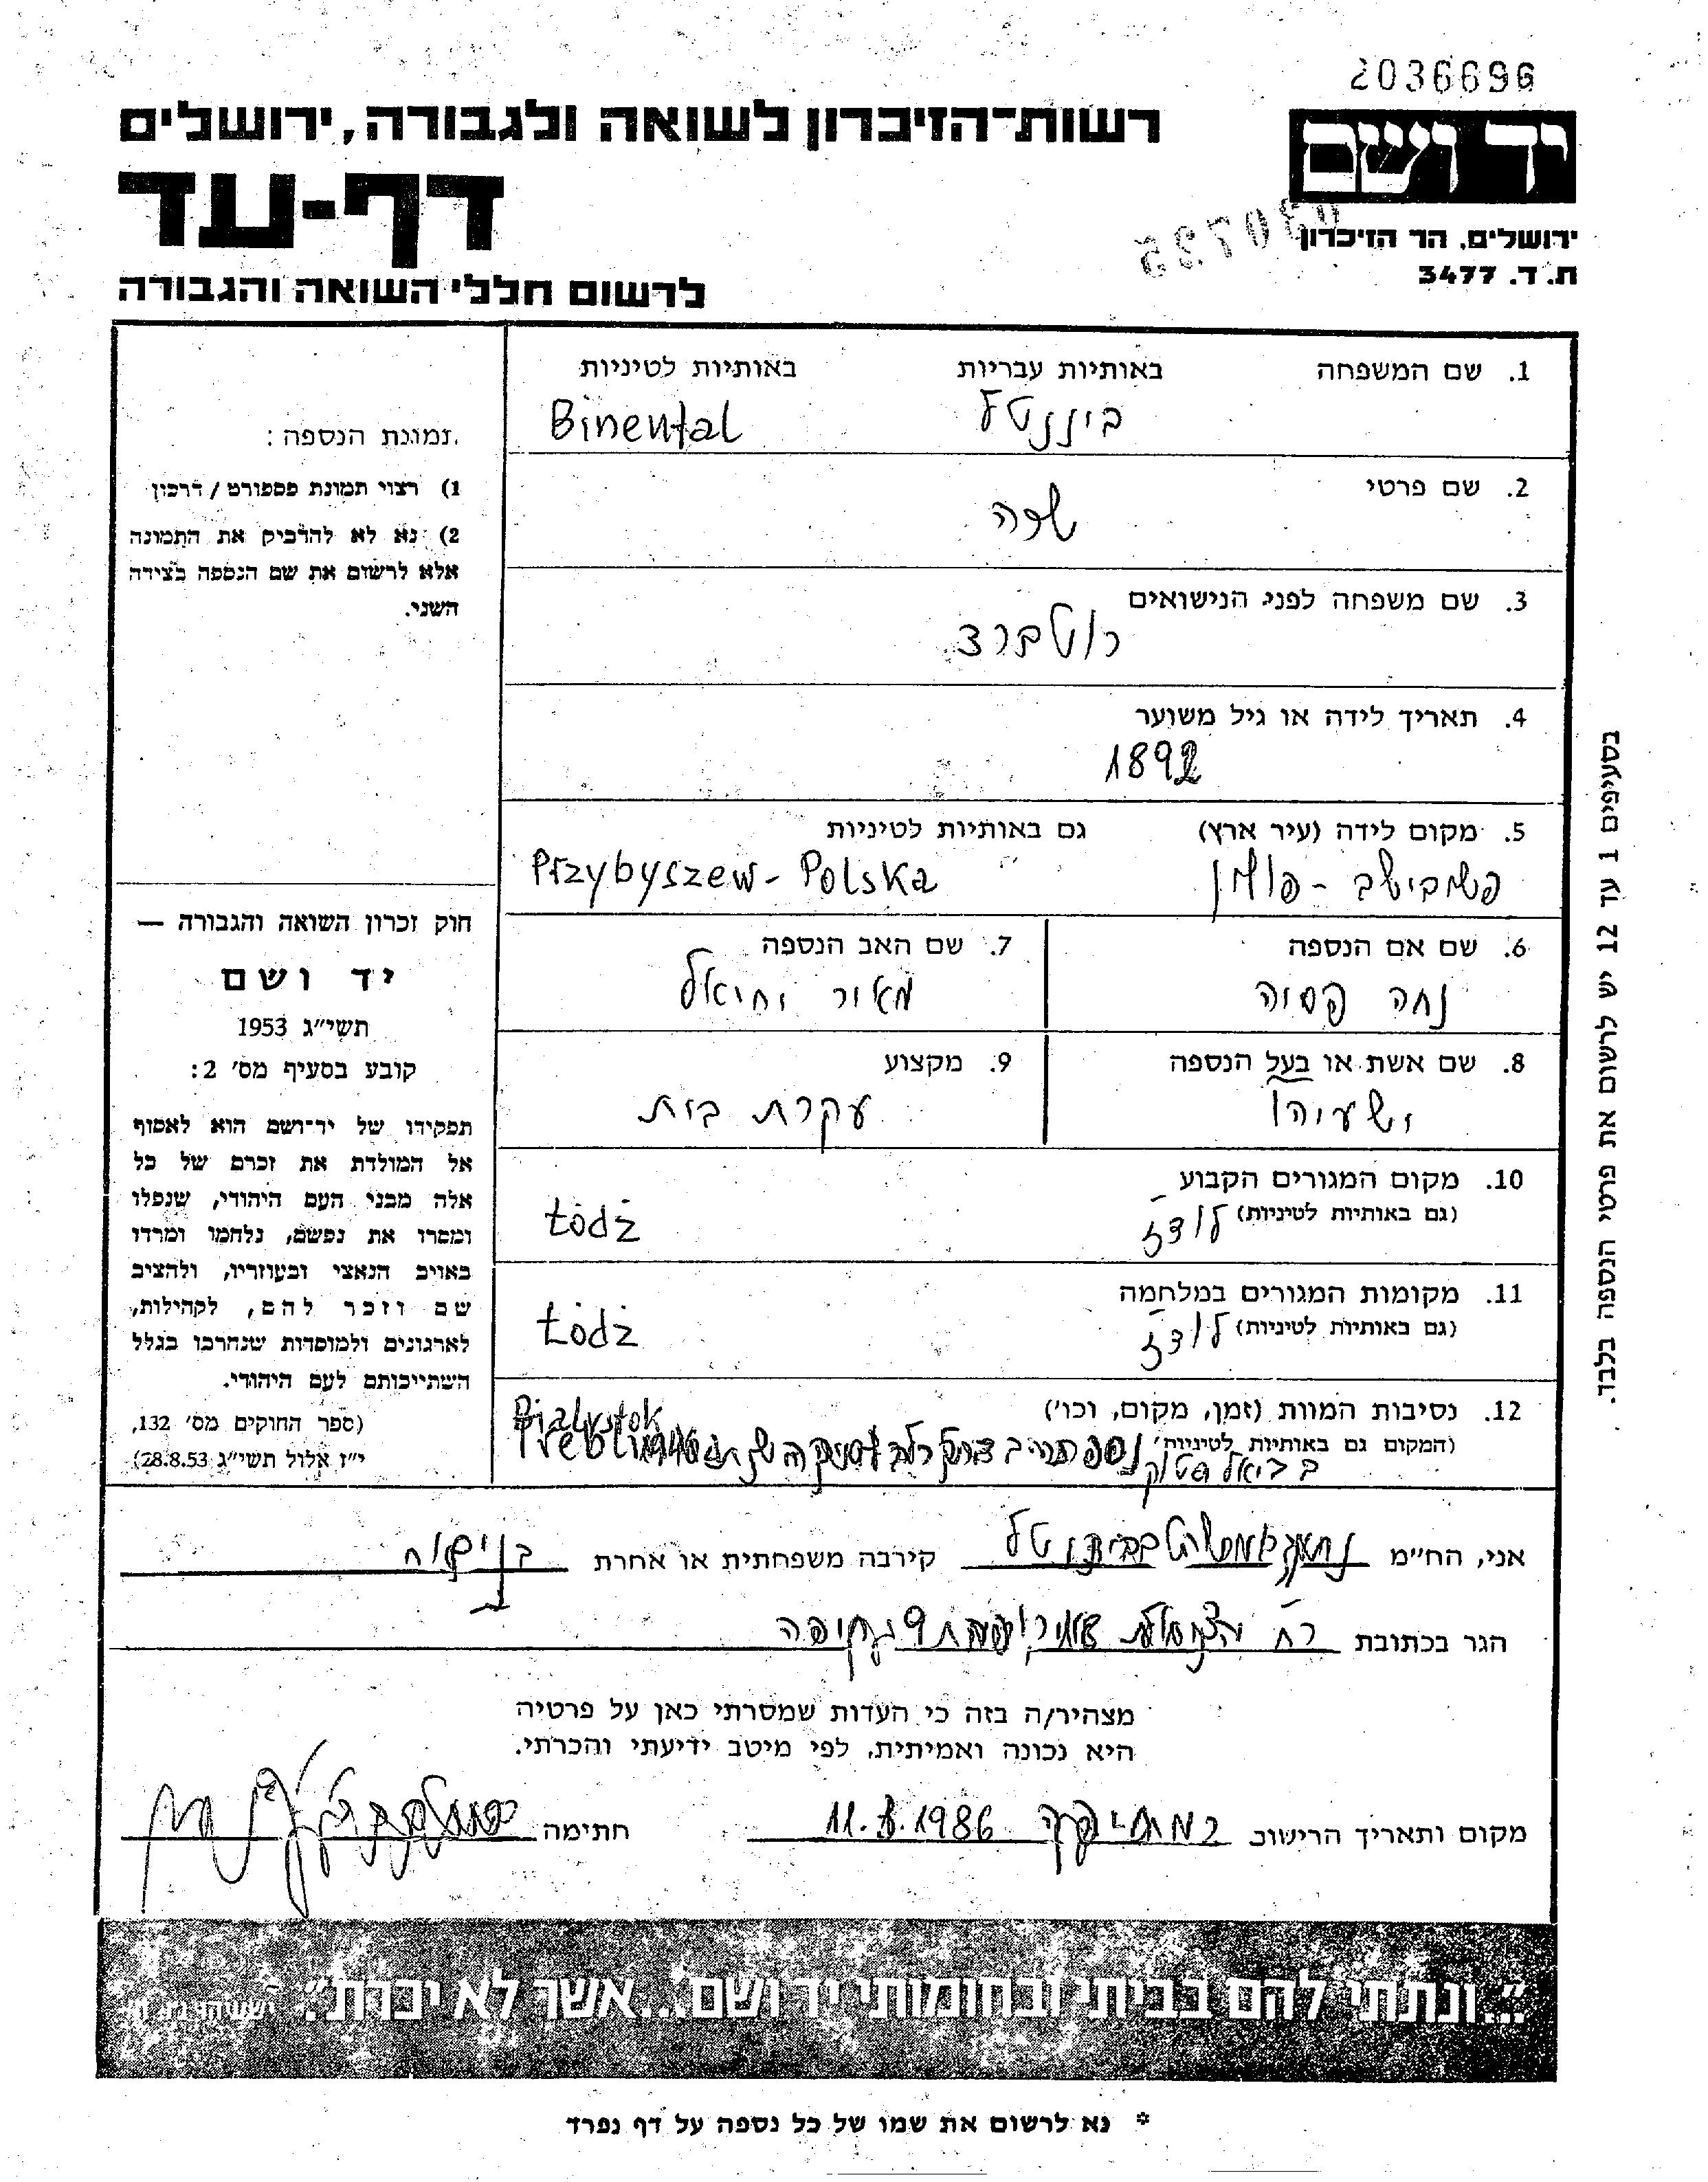 2036696
רשות־הזיכרון לשואה ולגבורה, ירושלים
יד ושם
דף-עד
ירושלים, הר הזיכרון
ת.ד. 3477
030735
לרשום חללי השואה והגבורה
1. שם המשפחה באותיות עבריות באותיות לטיניות
ביננטל Binental
2. שם פרטי
שפה
3. שם משפחה לפני הנישואים
רוטברד
4. תאריך לידה או גיל משוער
1892
5. מקום לידה (עיר ארץ) גם באותיות לטיניות
Przybyszew - Polska
6. שם אם הנספה 7. שם האב הנספה
נחה יחיאל
8. שם אשת או בעל הנספה 9. מקצוע
ישעיהו עקרת בית
10. מקום המגורים הקבוע
(גם באותיות לטיניות) לודז Łódź
11. מקומות המגורים במלחמה
(גם באותיות לטיניות) לודז Łódź
12. נסיבות המוות (זמן, מקום, וכו')
(המקום גם באותיות לטיניות) Bialystok
תמונת הנספה:
1) רצוי תמונת פספורט / דרכון
2) נא לא להדביק את התמונה
אלא לרשום את שם הנספה בצידה
השני.
חוק זכרון השואה והגבורה —
יד ושם
תשי"ג 1953
קובע בסעיף מס' 2:
תפקידו של יד־ושם הוא לאסוף
אל המולדת את זכרם של כל
אלה מבני העם היהודי, שנפלו
ומסרו את נפשם, נלחמו ומרדו
באויב הנאצי ובעוזריו, ולהציב
שם וזכר להם, לקהילות,
לארגונים ולמוסדות שנחרבו בגלל
השתייכותם לעם היהודי.
(ספר החוקים מס' 132,
י"ז אלול תשי"ג 28.8.53)
בסעיפים 1 עד 12 יש לרשום את פרטי הנספה בלבד.
אני, הח"מ קירבה משפחתית או אחרת
הגר בכתובת
מצהיר/ה בזה כי העדות שמסרתי כאן על פרטיה
היא נכונה ואמיתית, לפי מיטב ידיעתי והכרתי.
מקום ותאריך הרישום 11.8.1986 חתימה
"...ונתתי להם בביתי ובחומותי יד ושם... אשר לא יכרת".
* נא לרשום את שמו של כל נספה על דף נפרד